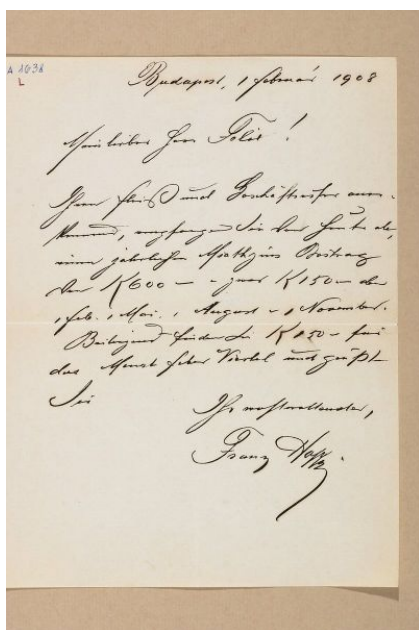 A 1038
L
Budapest, 1 februar 1908
Mein lieber Herr Felix!
Ihren Fleiß und Geschäftseifer aner-
kennend, empfangen Sie von heute ab,
einen jährlichen Miethzins Beitrag
von K 600 – zwar K 150 – den
1 feb. 1 Mai. 1 August 1 November.
Beiliegend finden Sie K 150 – für
das Viertel und grüßt
Sie
Ihr wohlwollender,
Franz Hopp